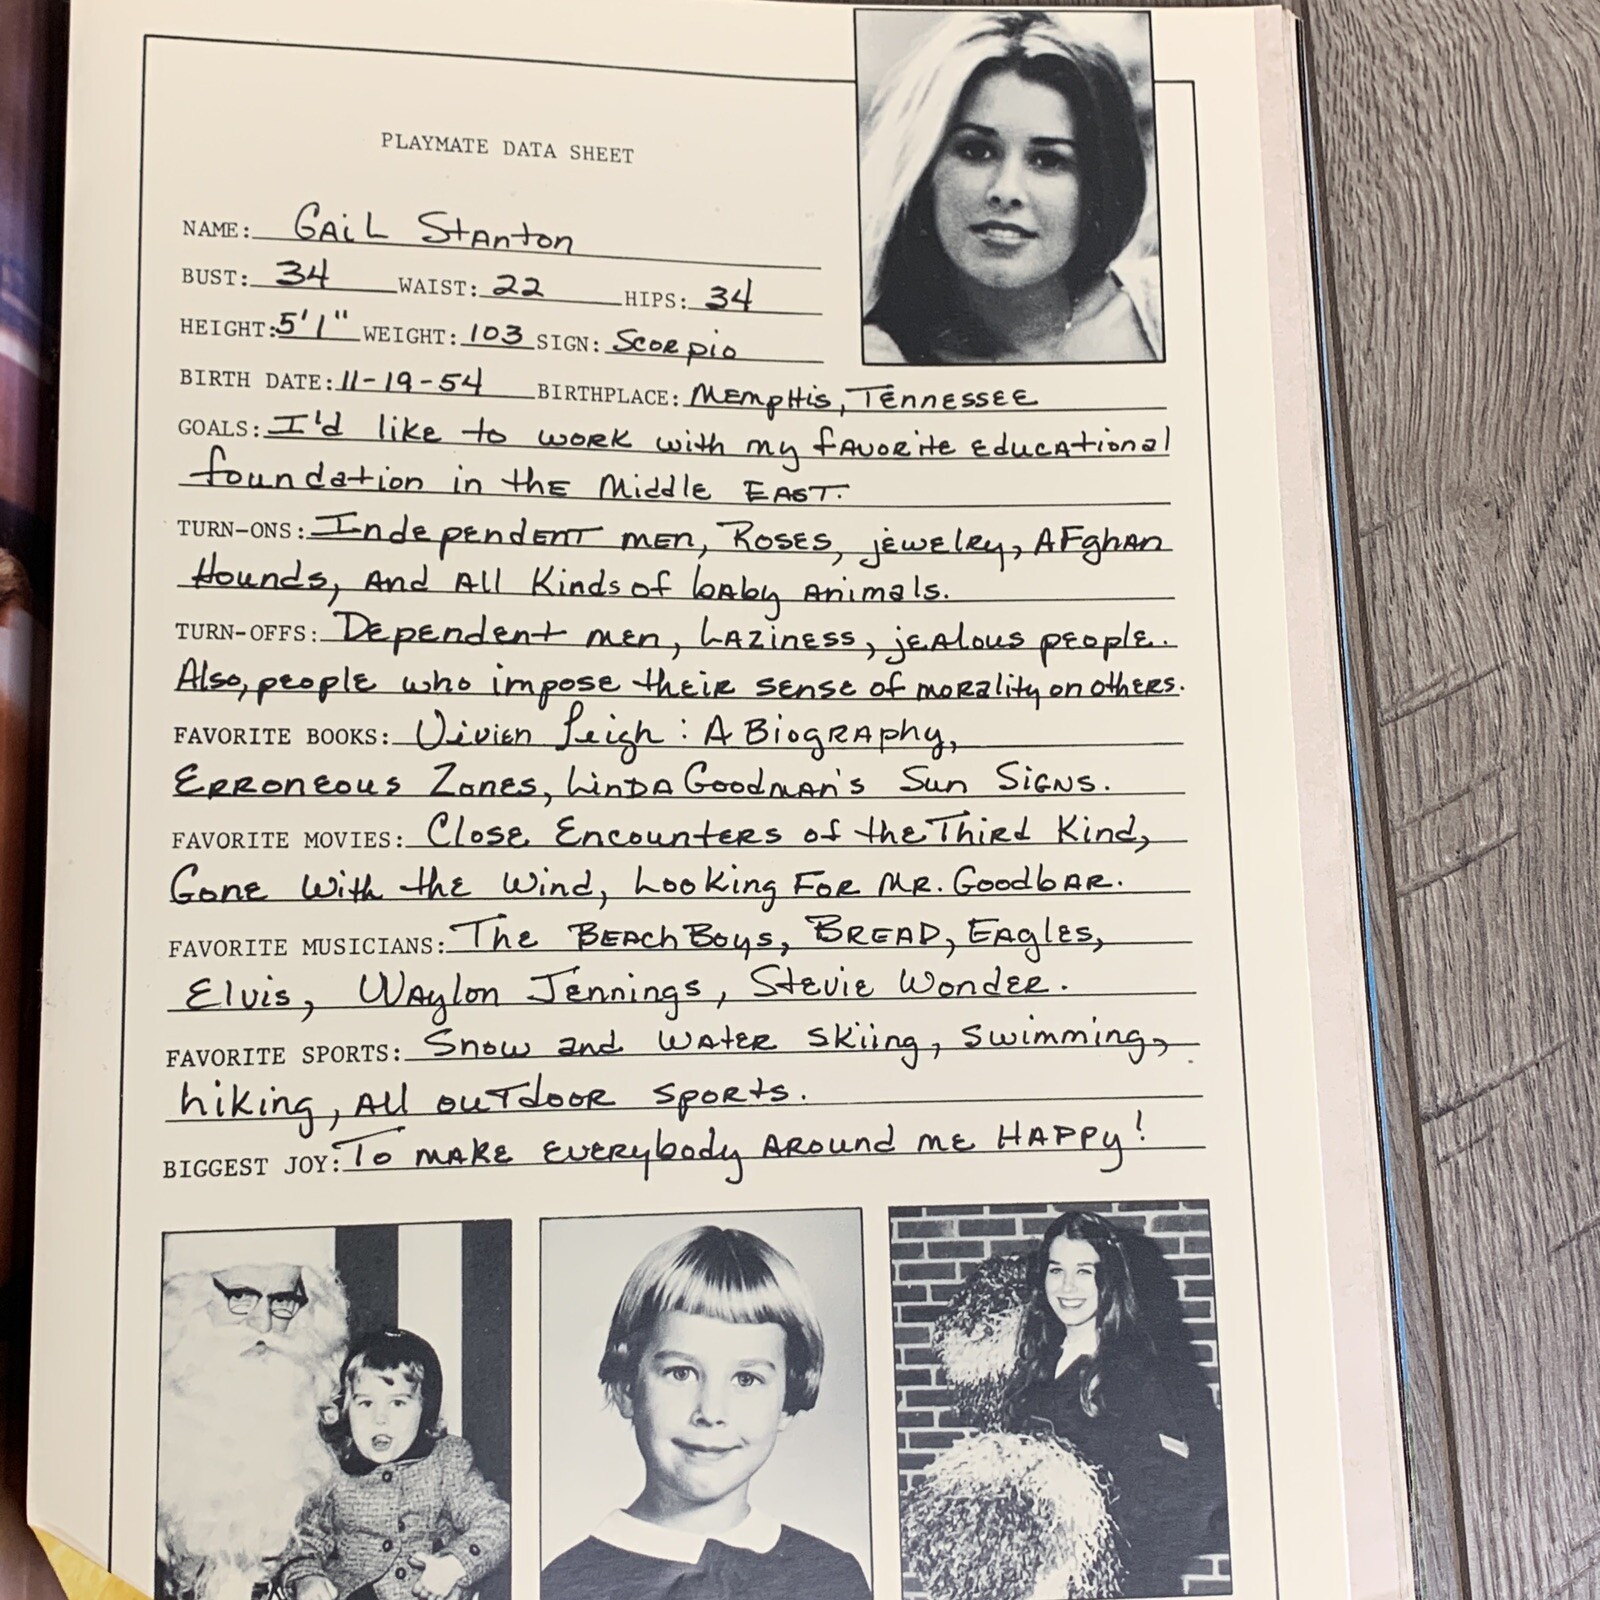 PLAYMATE DATA SHEET
NAME: GAiL StAnton
BUST: 34 WAIST: 22 HIPS: 34
HEIGHT: 5'1" WEIGHT: 103 SIGN: Scorpio
BIRTH DATE: 11-19-54 BIRTHPLACE: Memphis, Tennessee
GOALS: I'd like to work with my favorite educational
foundation in the Middle East.
TURN-ONS: Independent men, Roses, jewelry, Afghan
Hounds, and all kinds of baby animals.
TURN-OFFS: Dependent men, Laziness, jealous people.
Also, people who impose their sense of morality on others.
FAVORITE BOOKS: Vivien Leigh: A Biography,
Erroneous Zones, Linda Goodman's Sun Signs.
FAVORITE MOVIES: Close Encounters of the Third Kind,
Gone With the Wind, Looking For Mr. Goodbar.
FAVORITE MUSICIANS: The Beach Boys, Bread, Eagles,
Elvis, Waylon Jennings, Stevie Wonder.
FAVORITE SPORTS: Snow and water skiing, swimming,
hiking, all outdoor sports.
BIGGEST JOY: To make everybody around me HAPPY!